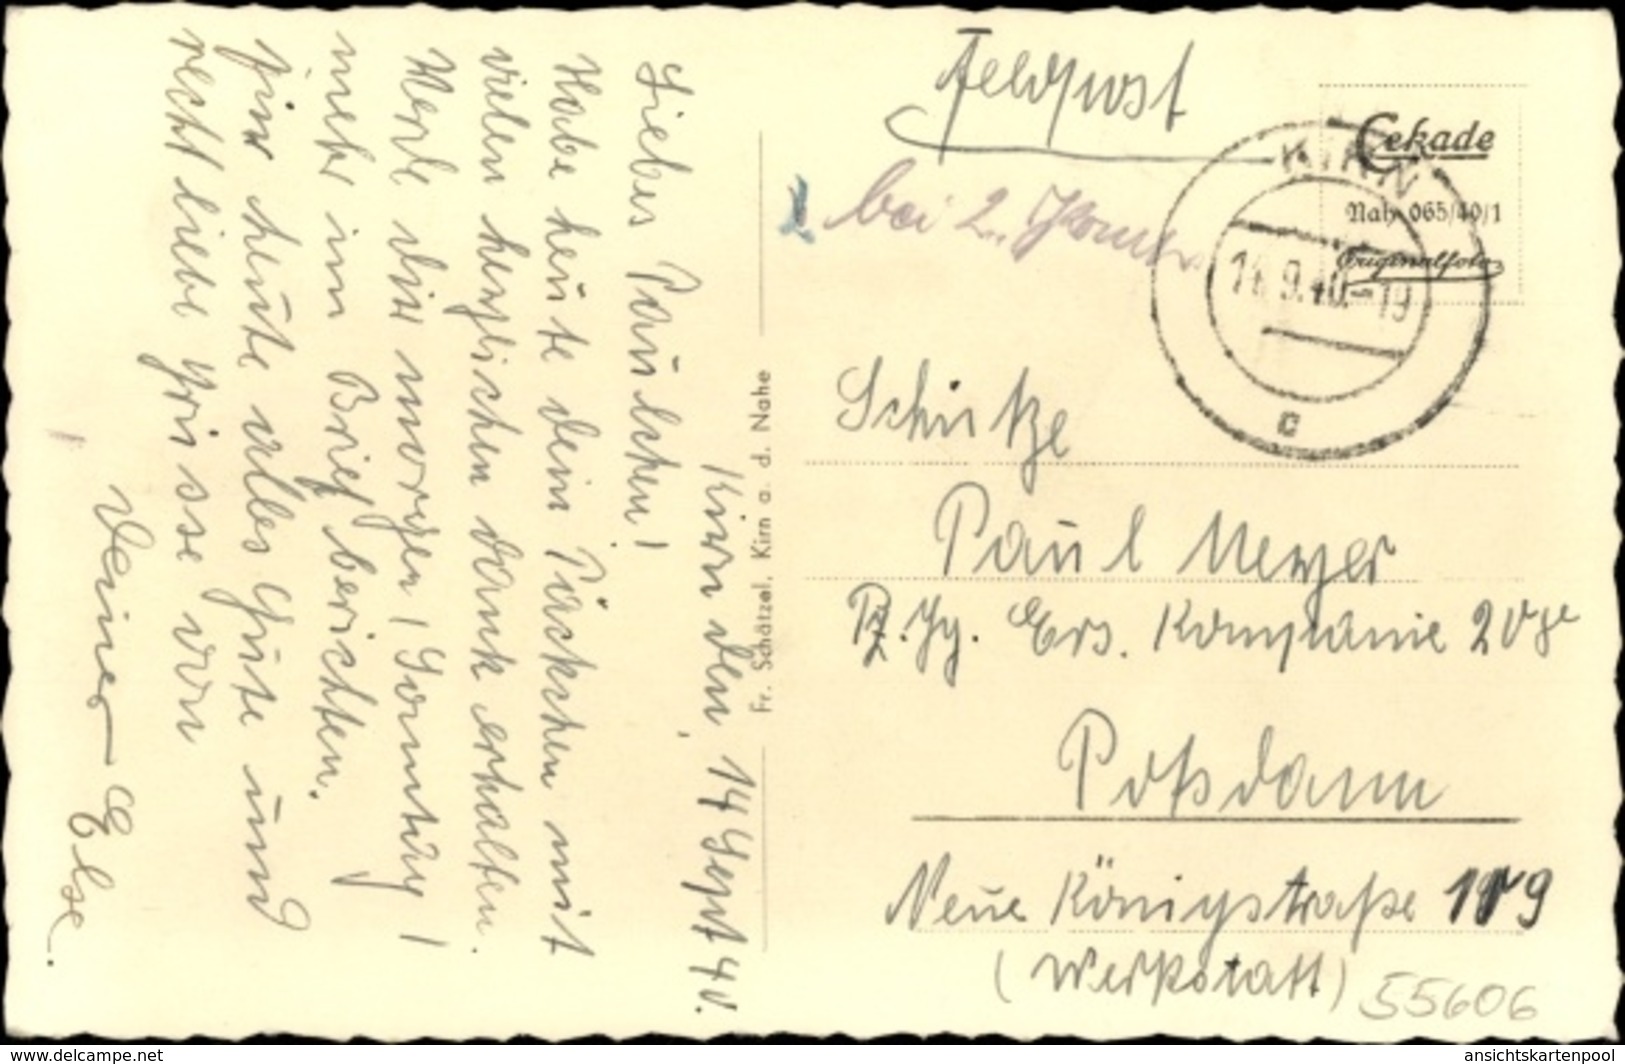 Kirn den, 14 Sept 40.
Liebes Paulchen!
Habe heute dein Päckchen mit
vielen herzlichen Dank erhalten.
Werde dir morgen, Sonntag,
mehr im Brief berichten.
Für heute alles Gute und
recht liebe Grüsse von
Deiner Else.
Fr. Schätzel, Kirn a. d. Nahe
Feldpost
bei 2.
Cekade
Nah 065/40/1
Originalfoto
KIRN
9.40.-19
c
Schütze
Paul Meyer
Pz. Jg. Ers. Kompanie 208
Potsdam
Neue Königstraße 119
(Werkstatt)
55606
www.delcampe.net
ansichtskartenpool